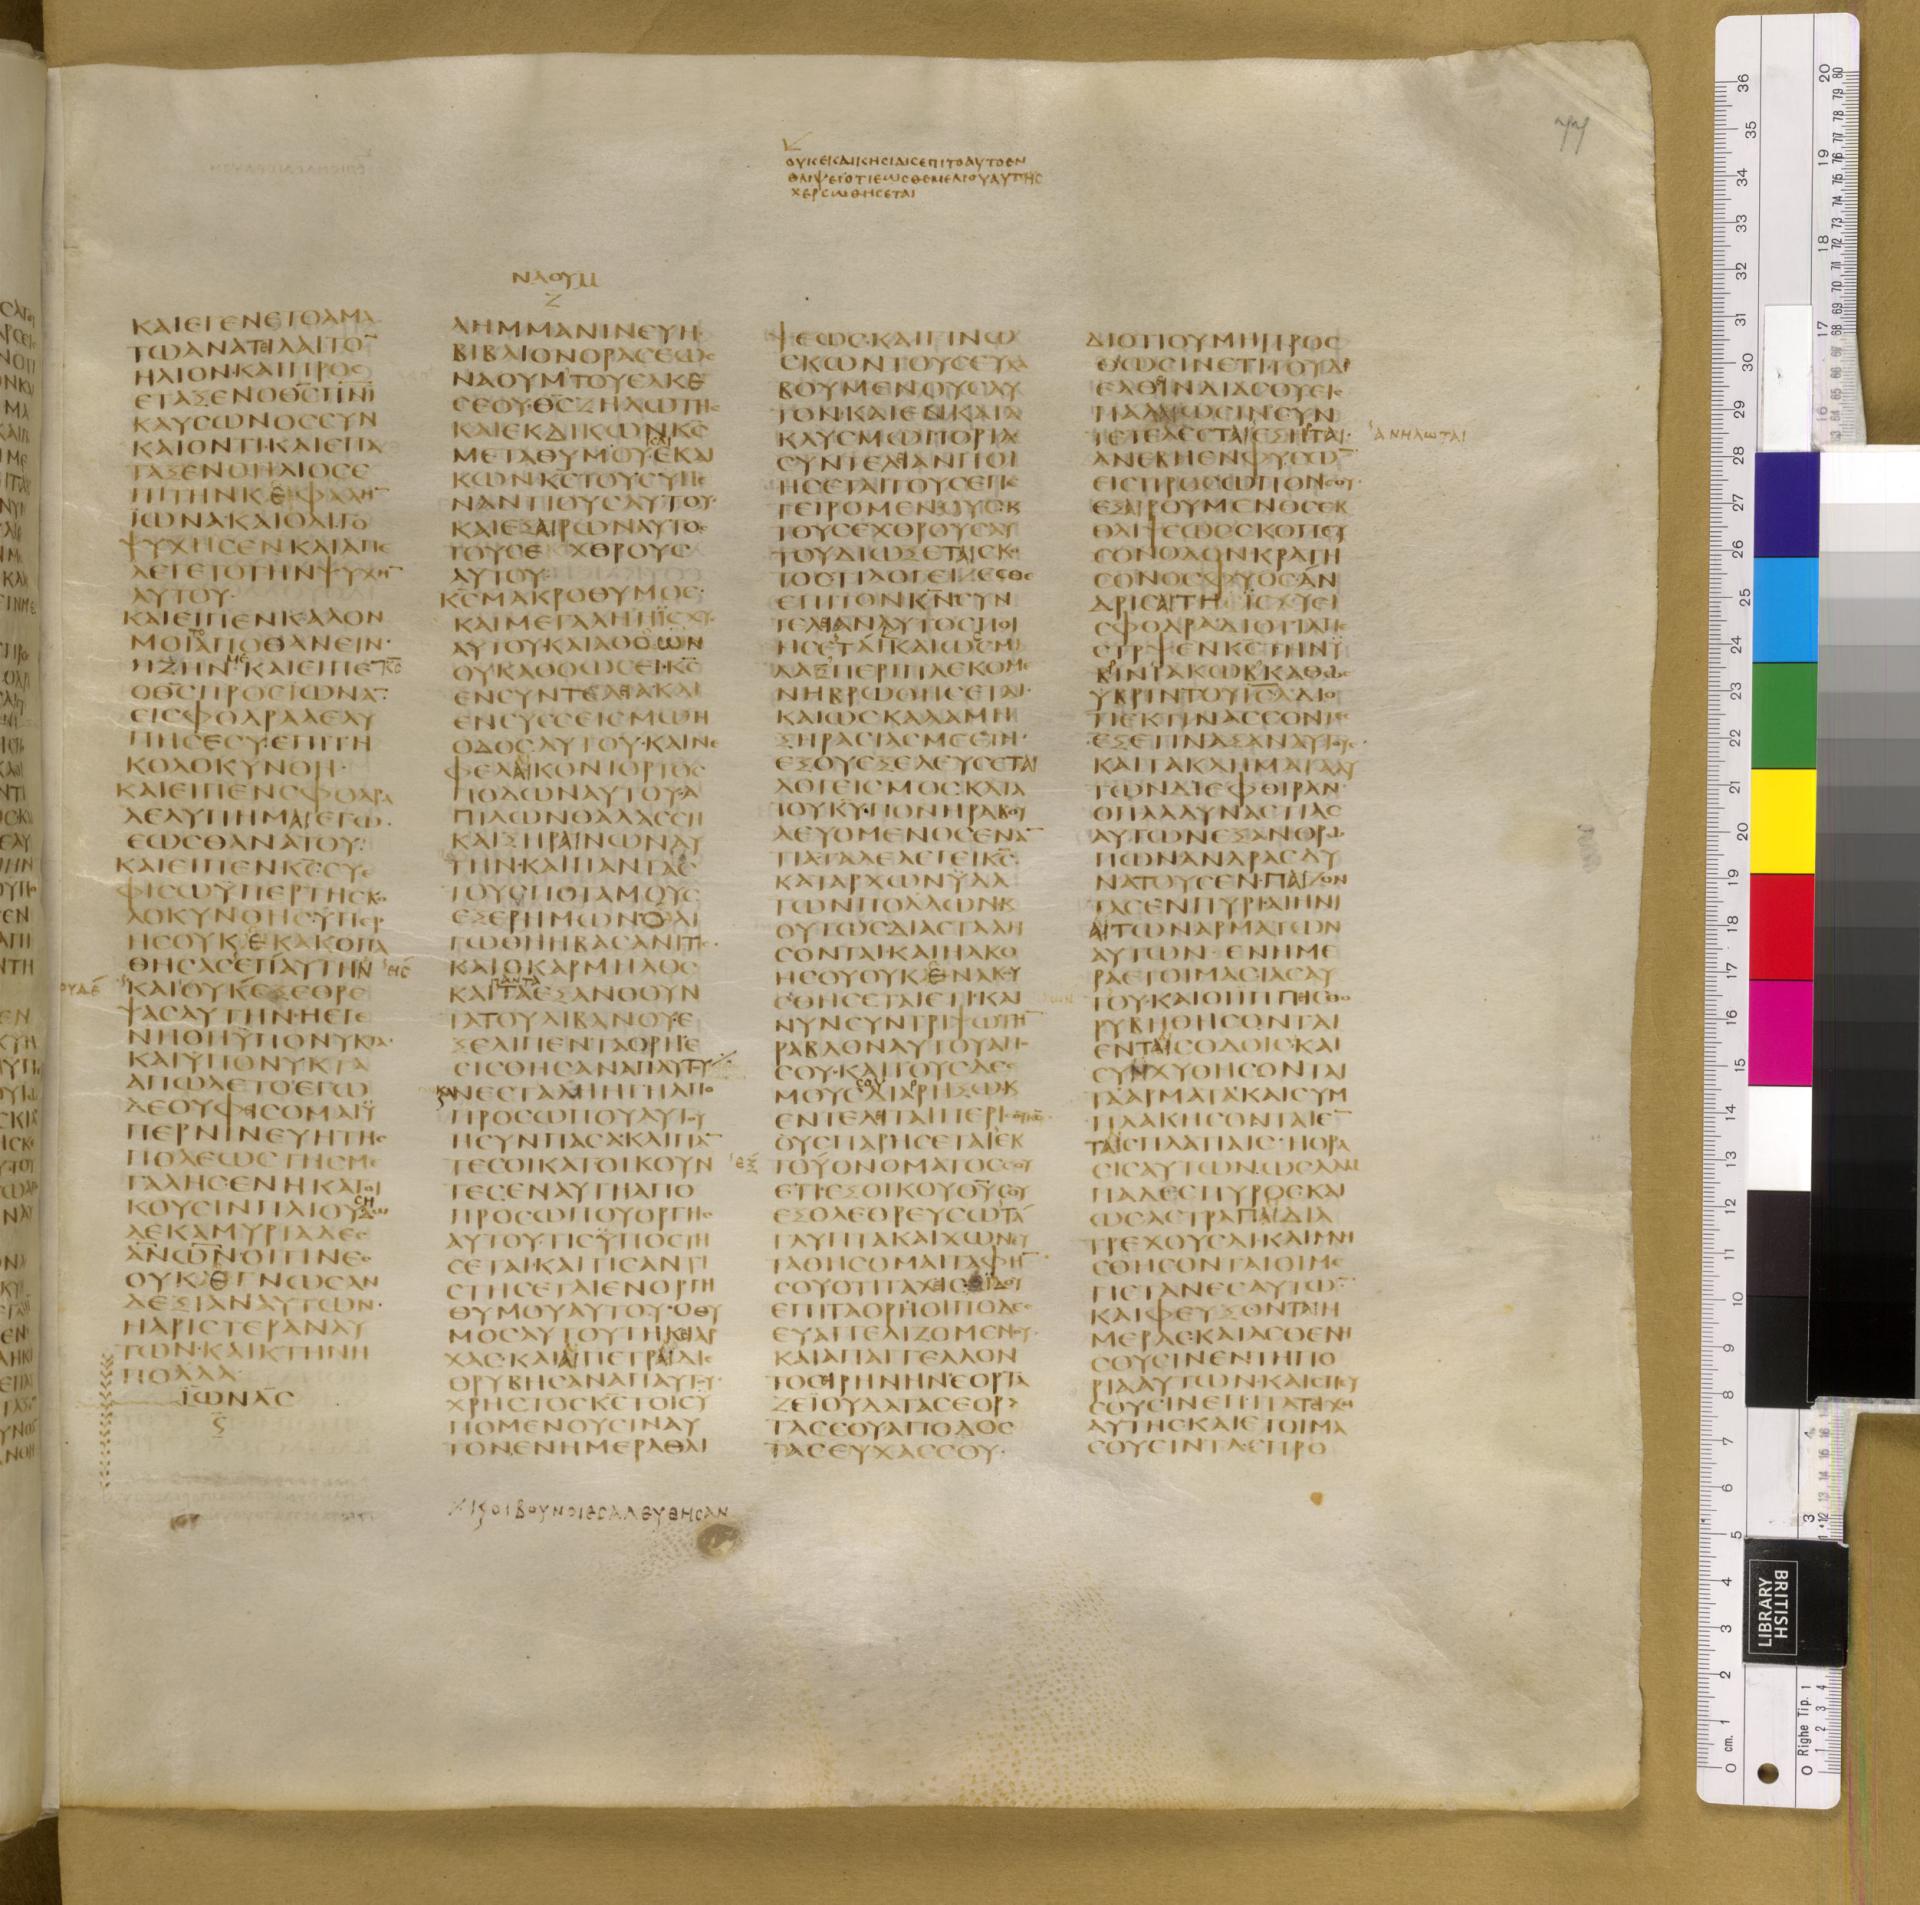 ΟΥΚΕΚΔΙΚΗϹΙΔΙϹΕΠΙΤΟΑΥΤΟΕΝ
ΘΛΙΨΕΙΟΤΙΕΩϹΘΕΜΕΛΙΟΥΑΥΤΗϹ
ΧΕΡϹΩΘΗϹΕΤΑΙ
ΚΑΙΕΓΕΝΕΤΟΑΜΑ
ΤΩΑΝΑΤΕΙΛΑΙΤΟ̅
ΗΛΙΟΝΚΑΙΠΡΟϹ
ΕΤΑΞΕΝΟΘ̅Ϲ̅Π̅Ν̅Ι̅
ΚΑΥϹΩΝΟϹϹΥΝ
ΚΑΙΟΝΤΙ·ΚΑΙΕΠΑ
ΤΑΞΕΝΟΗΛΙΟϹΕ
ΠΙΤΗΝΚΕΦΑΛΗ̅
ΪΩΝΑ·ΚΑΙΟΛΙΓΟ
ΨΥΧΗϹΕΝΚΑΙΑΠΕ
ΛΕΓΕΤΟΤΗΝΨΥΧΗ̅
ΑΥΤΟΥ·
ΚΑΙΕΙΠΕΝΚΑΛΟΝ
ΜΟΙΤΟΑΠΟΘΑΝΕΙΝ·
ΗΖΗΝΜΕ·ΚΑΙΕΙΠΕΚ̅Ϲ̅
ΟΘ̅Ϲ̅ΠΡΟϹΪΩΝΑ̅·
ΕΙϹΦΟΔΡΑΛΕΛΥ
ΠΗϹΕϹΥ·ΕΠΙΤΗ
ΚΟΛΟΚΥΝΘΗ·
ΚΑΙΕΙΠΕΝϹΦΟΔΡΑ
ΛΕΛΥΠΗΜΑΙΕΓΩ·
ΕΩϹΘΑΝΑΤΟΥ·
ΚΑΙΕΙΠΕΝΚ̅Ϲ̅·ϹΥΕ
ΦΙϹΩΫΠΕΡΤΗϹΚΟ
ΛΟΚΥΝΘΗϹ·ΫΠΕΡ
ΗϹΟΥΚΕΚΑΚΟΠΑ
ΘΗϹΑϹΕΠΑΥΤΗΝ ΗϹ
ΟΥΔΕ
ΚΑΙΟΥΚΕΞΕΘΡΕ
ΨΑϹΑΥΤΗΝ·ΗΕΓΕ
ΝΗΘΗΫΠΟΝΥΚΤΑ·
ΚΑΙΫΠΟΝΥΚΤΑ
ΑΠΩΛΕΤΟ·ΕΓΩ
ΔΕΟΥΦΕΙϹΟΜΑΙΫ
ΠΕΡΝΙΝΕΥΗΤΗϹ
ΠΟΛΕΩϹΤΗϹΜΕ
ΓΑΛΗϹΕΝΗΚΑΤΟΙ
ΚΟΥϹΙΝΠΛΙΟΥϹΗΔΩ
ΔΕΚΑΜΥΡΙΑΔΕϹ
Α̅Ν̅Ω̅Ν̅ΟΙΤΙΝΕϹ
ΟΥΚΕΓΝΩϹΑΝ
ΔΕΞΙΑΝΑΥΤΩΝ·
ΗΑΡΙϹΤΕΡΑΝΑΥ
ΤΩΝ·ΚΑΙΚΤΗΝΗ
ΠΟΛΛΑ·
ΪΩΝΑϹ
Ϛ
ΝΑΟΥΜ
Ζ
ΛΗΜΜΑΝΙΝΕΥΗ·
ΒΙΒΛΙΟΝΟΡΑϹΕΩϹ
ΝΑΟΥΜΤΟΥΕΛΚΕ
ϹΕΟΥ·Θ̅Ϲ̅ΖΗΛΩΤΗϹ
ΚΑΙΕΚΔΙΚΩΝΚ̅Ϲ̅
ΜΕΤΑΘΥΜΟΥ·ΕΚΔΙ
ΚΩΝΚ̅Ϲ̅ΤΟΥϹΫΠΕ
ΝΑΝΤΙΟΥϹΑΥΤΟΥ·
ΚΑΙΕΞΑΙΡΩΝΑΥΤΟϹ
ΤΟΥϹΕΧΘΡΟΥϹ
ΑΥΤΟΥ·
Κ̅Ϲ̅ΜΑΚΡΟΘΥΜΟϹ·
ΚΑΙΜΕΓΑΛΗΗΪϹΧΥϹ
ΑΥΤΟΥ·ΚΑΙΑΘΟΩΝ
ΟΥΚΑΘΟΩϹΕΙ·Κ̅Ϲ̅
ΕΝϹΥΝΤΕΛΕΙΑΚΑΙ
ΕΝϹΥϹϹΕΙϹΜΩΗ
ΟΔΟϹΑΥΤΟΥ·ΚΑΙΝΕ
ΦΕΛΑΙΚΟΝΙΟΡΤΟϹ
ΠΟΔΩΝΑΥΤΟΥ·Α
ΠΙΛΩΝΘΑΛΑϹϹΗ
ΚΑΙΞΗΡΑΙΝΩΝΑΥ
ΤΗΝ·ΚΑΙΠΑΝΤΑϹ
ΤΟΥϹΠΟΤΑΜΟΥϹ
ΕΞΕΡΗΜΩΝ·ΟΛΙ
ΓΩΘΗΗΒΑϹΑΝΙΤΙϹ·
ΚΑΙΟΚΑΡΜΗΛΟϹ
ΚΑΙΠΑΝΤΑΤΑΕΞΑΝΘΟΥΝ
ΤΑΤΟΥΛΙΒΑΝΟΥ·Ε
ΞΕΛΙΠΕΝ·ΤΑΟΡΗΕ
ϹΙϹΘΗϹΑΝΑΠΑΥΤΟΥ·
ΚΑΙΑΝΕϹΤΑΛΗΗΓΗΑΠΟ
ΠΡΟϹΩΠΟΥΑΥΤΟΥ
ΗϹΥΝΠΑϹΑ·ΚΑΙΠΑ̅
ΤΕϹΟΙΚΑΤΟΙΚΟΥΝ
ΤΕϹΕΝΑΥΤΗΑΠΟ
ΠΡΟϹΩΠΟΥΟΡΓΗϹ
ΑΥΤΟΥ·ΤΙϹΫΠΟϹΤΗ
ϹΕΤΑΙ·ΚΑΙΤΙϹΑΝΤΙ
ϹΤΗϹΕΤΑΙΕΝΟΡΓΗ
ΘΥΜΟΥΑΥΤΟΥ·ΟΘΥ
ΜΟϹΑΥΤΟΥΤΗΚΕΙΑΡ
ΧΑϹ·ΚΑΙΑΙΠΕΤΡΑΙΔΙΕ
ΘΡΥΒΗϹΑΝΑΠΑΥΤΟΥ·
ΧΡΗϹΤΟϹΚ̅Ϲ̅ΤΟΙϹΫ
ΠΟΜΕΝΟΥϹΙΝΑΥ
ΤΟΝ·ΕΝΗΜΕΡΑΘΛΙ
ΚΑΙΟΙΒΟΥΝΟΙΕϹΑΛΕΥΘΗϹΑΝ
ΨΕΩϹ·ΚΑΙΓΙΝΩ
ϹΚΩΝΤΟΥϹΕΥΛΑ
ΒΟΥΜΕΝΟΥϹΑΥ
ΤΟΝ·ΚΑΙΕΝΚΑΤΑ
ΚΛΥϹΜΩΠΟΡΙΑϹ
ϹΥΝΤΕΛΕΙΑΝΠΟΙ
ΗϹΕΤΑΙΤΟΥϹΕΠΕ
ΓΕΙΡΟΜΕΝΟΥϹ·Κ
ΤΟΥϹΕΧΘΡΟΥϹΑΥ
ΤΟΥΔΙΩΞΕΤΑΙϹΚ·
ΤΟϹΤΙΛΟΓΙΖΕϹΘΕ
ΕΠΙΤΟΝΚ̅Ν̅ϹΥΝ
ΤΕΛΕΙΑΝΑΥΤΟϹΠΟΙ
ΗϹΕΤΑΙ·
ΝΗΒΡΩΘΗϹΕΤΑΙ·
ΚΑΙΩϹΚΑΛΑΜΗ
ΞΗΡΑϹΙΑϹΜΕϹΤΗ·
ΕΞΟΥΕΞΕΛΕΥϹΕΤΑΙ
ΛΟΓΕΙϹΜΟϹΚΑΤΑ
ΤΟΥΚ̅Υ̅·ΠΟΝΗΡΑΒΟΥ
ΛΕΥΟΜΕΝΟϹΕΝΑ̅
ΤΙΑ·ΤΑΔΕΛΕΓΕΙΚ̅Ϲ̅
ΚΑΤΑΡΧΩΝΫΔΑ
ΤΩΝΠΟΛΛΩΝ·Κ
ΟΥΤΩϹΔΙΑϹΤΑΛΗ
ϹΟΝΤΑΙ·ΚΑΙΗΑΚΟ
ΗϹΟΥΟΥΚΕΝΑΚΟΥ
ϹΘΗϹΕΤΑΙΕΤΙ·ΚΑΙ
ΝΥΝϹΥΝΤΡΙΨΩΤΗ̅
ΡΑΒΔΟΝΑΥΤΟΥΑΠΟ
ϹΟΥ·ΚΑΙΤΟΥϹΔΕϹ
ΜΟΥϹϹΟΥΔΙΑΡΗΞΩ·Κ
ΕΝΤΕΛΕΙΤΑΙΠΕΡΙ
ϹΟΥϹΠΑΡΗϹΕΤΑΙΕΚ
ΕΞ ΤΟΥΟΝΟΜΑΤΟϹϹΟΥ
ΕΤΙ·ΕΞΟΙΚΟΥΘ̅Υ̅ϹΟΥ
ΕΞΟΛΕΘΡΕΥϹΩΤΑ
ΓΛΥΠΤΑΚΑΙΧΩΝΕΥ
ΤΑΘΗϹΟΜΑΙΤΑΦΗ̅
ϹΟΥΟΤΙΤΑΧΕΙϹ·ΪΔΟΥ
ΕΠΙΤΑΟΡΗΟΙΠΟΔΕϹ
ΕΥΑΓΓΕΛΙΖΟΜΕΝΟΥ·
ΚΑΙΑΠΑΓΓΕΛΛΟΝ
ΤΟϹΙΡΗΝΗΝ·ΕΟΡΤΑ
ΖΕΪΟΥΔΑΤΑϹΕΟΡ
ΤΑϹϹΟΥΑΠΟΔΟϹ
ΤΑϹΕΥΧΑϹϹΟΥ·
ΔΙΟΤΙΟΥΜΗΠΡΟϹ
ΘΩϹΙΝΕΤΙ·ΤΟΥΔΙ
ΕΛΘΙΝΔΙΑϹΟΥΕΙϹ
ΠΑΛΑΙΩϹΙΝ·ϹΥΝ
ΤΕΤΕΛΕϹΤΑΙΕΞΗΡΤΑΙ· ΑΝΗΛΩΤΑΙ
ΑΝΕΒΗΕΝΦΥϹΩ̅
ΕΙϹΠΡΟϹΩΠΟΝϹΟΥ·
ΕΞΑΙΡΟΥΜΕΝΟϹΕΚ
ΘΛΙΨΕΩϹ·ϹΚΟΠΕΥ
ϹΟΝΟΔΟΝ·ΚΡΑΤΗ
ϹΟΝΟϹΦΥΟϹ·ΑΝ
ΔΡΙϹΑΙΤΗΪϹΧΥΕΙ
ϹΦΟΔΡΑ·ΔΙΟΤΙΑΠΕ
ϹΤΡΨΕΝΚ̅Ϲ̅ΤΗΝΫ
ΒΡΙΝΪΑΚΩΒ·ΚΑΘΩϹ
ΫΒΡΙΝΤΟΥΪ̅Ϲ̅Λ̅·ΔΙΟ
ΤΙΕΚΤΙΝΑϹϹΟΝΤΕϹ
ΕΞΕΤΙΝΑΞΑΝΑΥΤΟΥϹ·
ΚΑΙΤΑΚΛΗΜΑΤΑΑΥ
ΤΩΝΔΙΕΦΘΙΡΑΝ·
ΟΠΛΑΔΥΝΑϹΤΙΑϹ
ΑΥΤΩΝΕΞΑΝΘΡΩ
ΠΩΝΑΝΔΡΑϹΔΥ
ΝΑΤΟΥϹΕΝΠΑΙΖΟΝ
ΤΑϹΕΝΠΥΡΙ·ΑΙΗΝΙ
ΑΙΤΩΝΑΡΜΑΤΩΝ
ΑΥΤΩΝ·ΕΝΗΜΕ
ΡΑΕΤΟΙΜΑϹΙΑϹΑΥ
ΤΟΥ·ΚΑΙΟΙΙΠΠΕΙϹΘΟ
ΡΥΒΗΘΗϹΟΝΤΑΙ
ΕΝΤΑΙϹΟΔΟΙϹ·ΚΑΙ
ϹΥΝΧΥΘΗϹΟΝΤΑΙ
ΤΑΑΡΜΑΤΑ·ΚΑΙϹΥΜ
ΠΛΑΚΗϹΟΝΤΑΙΕ̅
ΤΑΙϹΠΛΑΤΙΑΙϹ·ΗΟΡΑ
ϹΙϹΑΥΤΩΝ·ΩϹΛΑΜ
ΠΑΔΕϹΠΥΡΟϹ·ΚΑΙ
ΩϹΑϹΤΡΑΠΑΙΔΙΑ
ΤΡΕΧΟΥϹΑΙ·ΚΑΙΜΝΗ
ϹΘΗϹΟΝΤΑΙΟΙΜΕ
ΓΙϹΤΑΝΕϹΑΥΤΩ̅·
ΚΑΙΦΕΥΞΟΝΤΑΙΗ
ΜΕΡΑϹ·ΚΑΙΑϹΘΕΝΗ
ϹΟΥϹΙΝΕΝΤΗΠΟ
ΡΙΑΑΥΤΩΝ·ΚΑΙϹΠΕΥ
ϹΟΥϹΙΝΕΠΙΤΑΤΕΙΧΗ
ΑΥΤΗϹ·ΚΑΙΕΤΟΙΜΑ
ϹΟΥϹΙΝΤΑϹΠΡΟ
BRITISH
LIBRARY
0 cm. 1
0 Righe Tip. 1